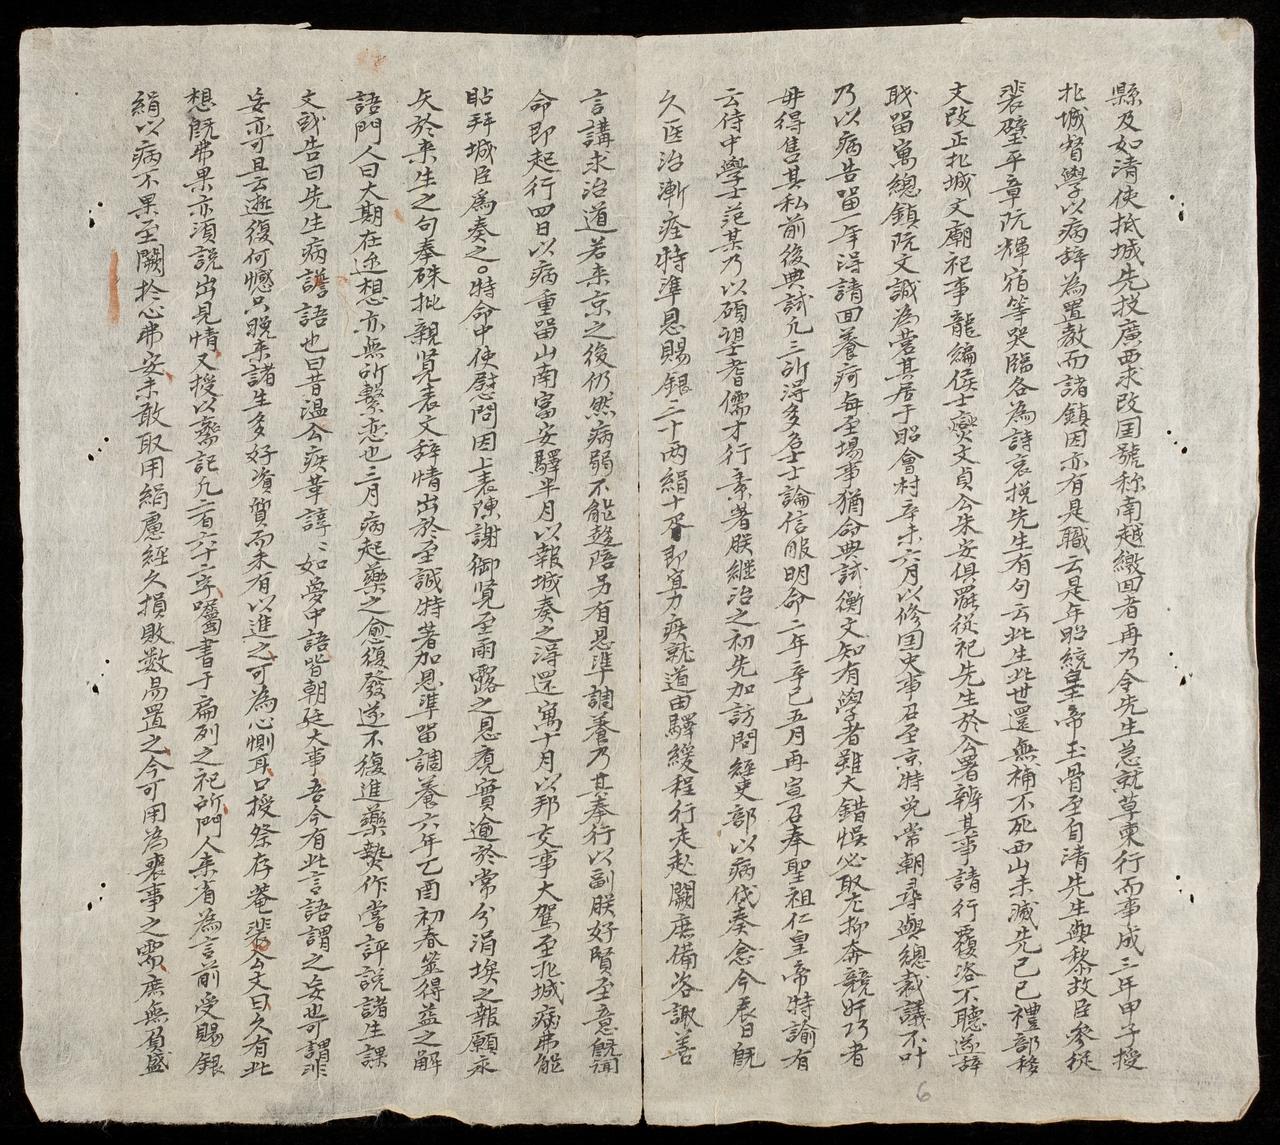 縣及如清使抵城先投廣西求改国號称南越繳回者再乃令先生急就草東行而事成三年甲子授
北城督學以病辞為置教而諸鎮因亦有是職云是年昭統皇帝玉骨至自清先生與黎故臣參從
裴璧平章阮輝宿等哭臨各為詩哀挽先生有句云此生此世還無補不死西山未滅先己巳禮部移
文改正北城文廟祀事龍編侯士燮文貞公朱安俱罷從祀先生於公署辨其事請行覆咨不聽遂辞
戝留寓總鎮阮文誠為营其居于昭會村辛未六月以修国史事召至京特免常朝尋與總裁議不叶
乃以病告留一年淂請回養疴每至場事猶命典試衡文知有學者雖大錯悞必取尤抑奔競奸巧者
毋得售其私前後典試凡三所得多名士士論信服明命二年辛巳五月再宣召奉聖祖仁皇帝特諭有
云侍中學士范某乃以碩望耆儒才行素著朕継治之初先加訪問經吏部以病代奏念今辰日既
久医治漸痊特準恩賜銀二十两絹十疋即宜力疾就道由驛緩程行走赴闕庶備咨諏善
言講求治道若来京之後仍然病弱不能趋陪另有恩準調養乃其奉行以副朕好賢至意既聞
命即起行四日以病重留山南富安驛半月以報城奏之淂還寓十月以邦交事大駕至北城病弗能
跕拜城臣爲奏之。特命中使慰問因上表陳謝御覧至雨露之恩寛實逾於常分涓埃之報願永
矢於来生之句奉硃批親覧表文辞情出於至誠特著加恩準留調養六年乙酉初春筮得益之解
語門人曰大期在迩想亦無所繫恋也三月病起藥之愈復發遂不復進藥贄作嘗評說諸生課
文或告曰先生病譫語也曰昔温公疾革諄〻如夢中語皆朝廷大事吾今有此言語謂之妄也可謂非
妄亦可且云逝復何憾只晚来諸生多好資質而未有以進之可為心惻耳口授祭存菴裴公文曰久有此
想既弗果亦須說出見情又授以齋記凡二百六十二字囑書于扁列之祀所門人来省為言前受賜銀
絹以病不果至闕於心弗安未敢取用絹慮經久損敗数易置之今可用為喪事之需庶無負盛
6